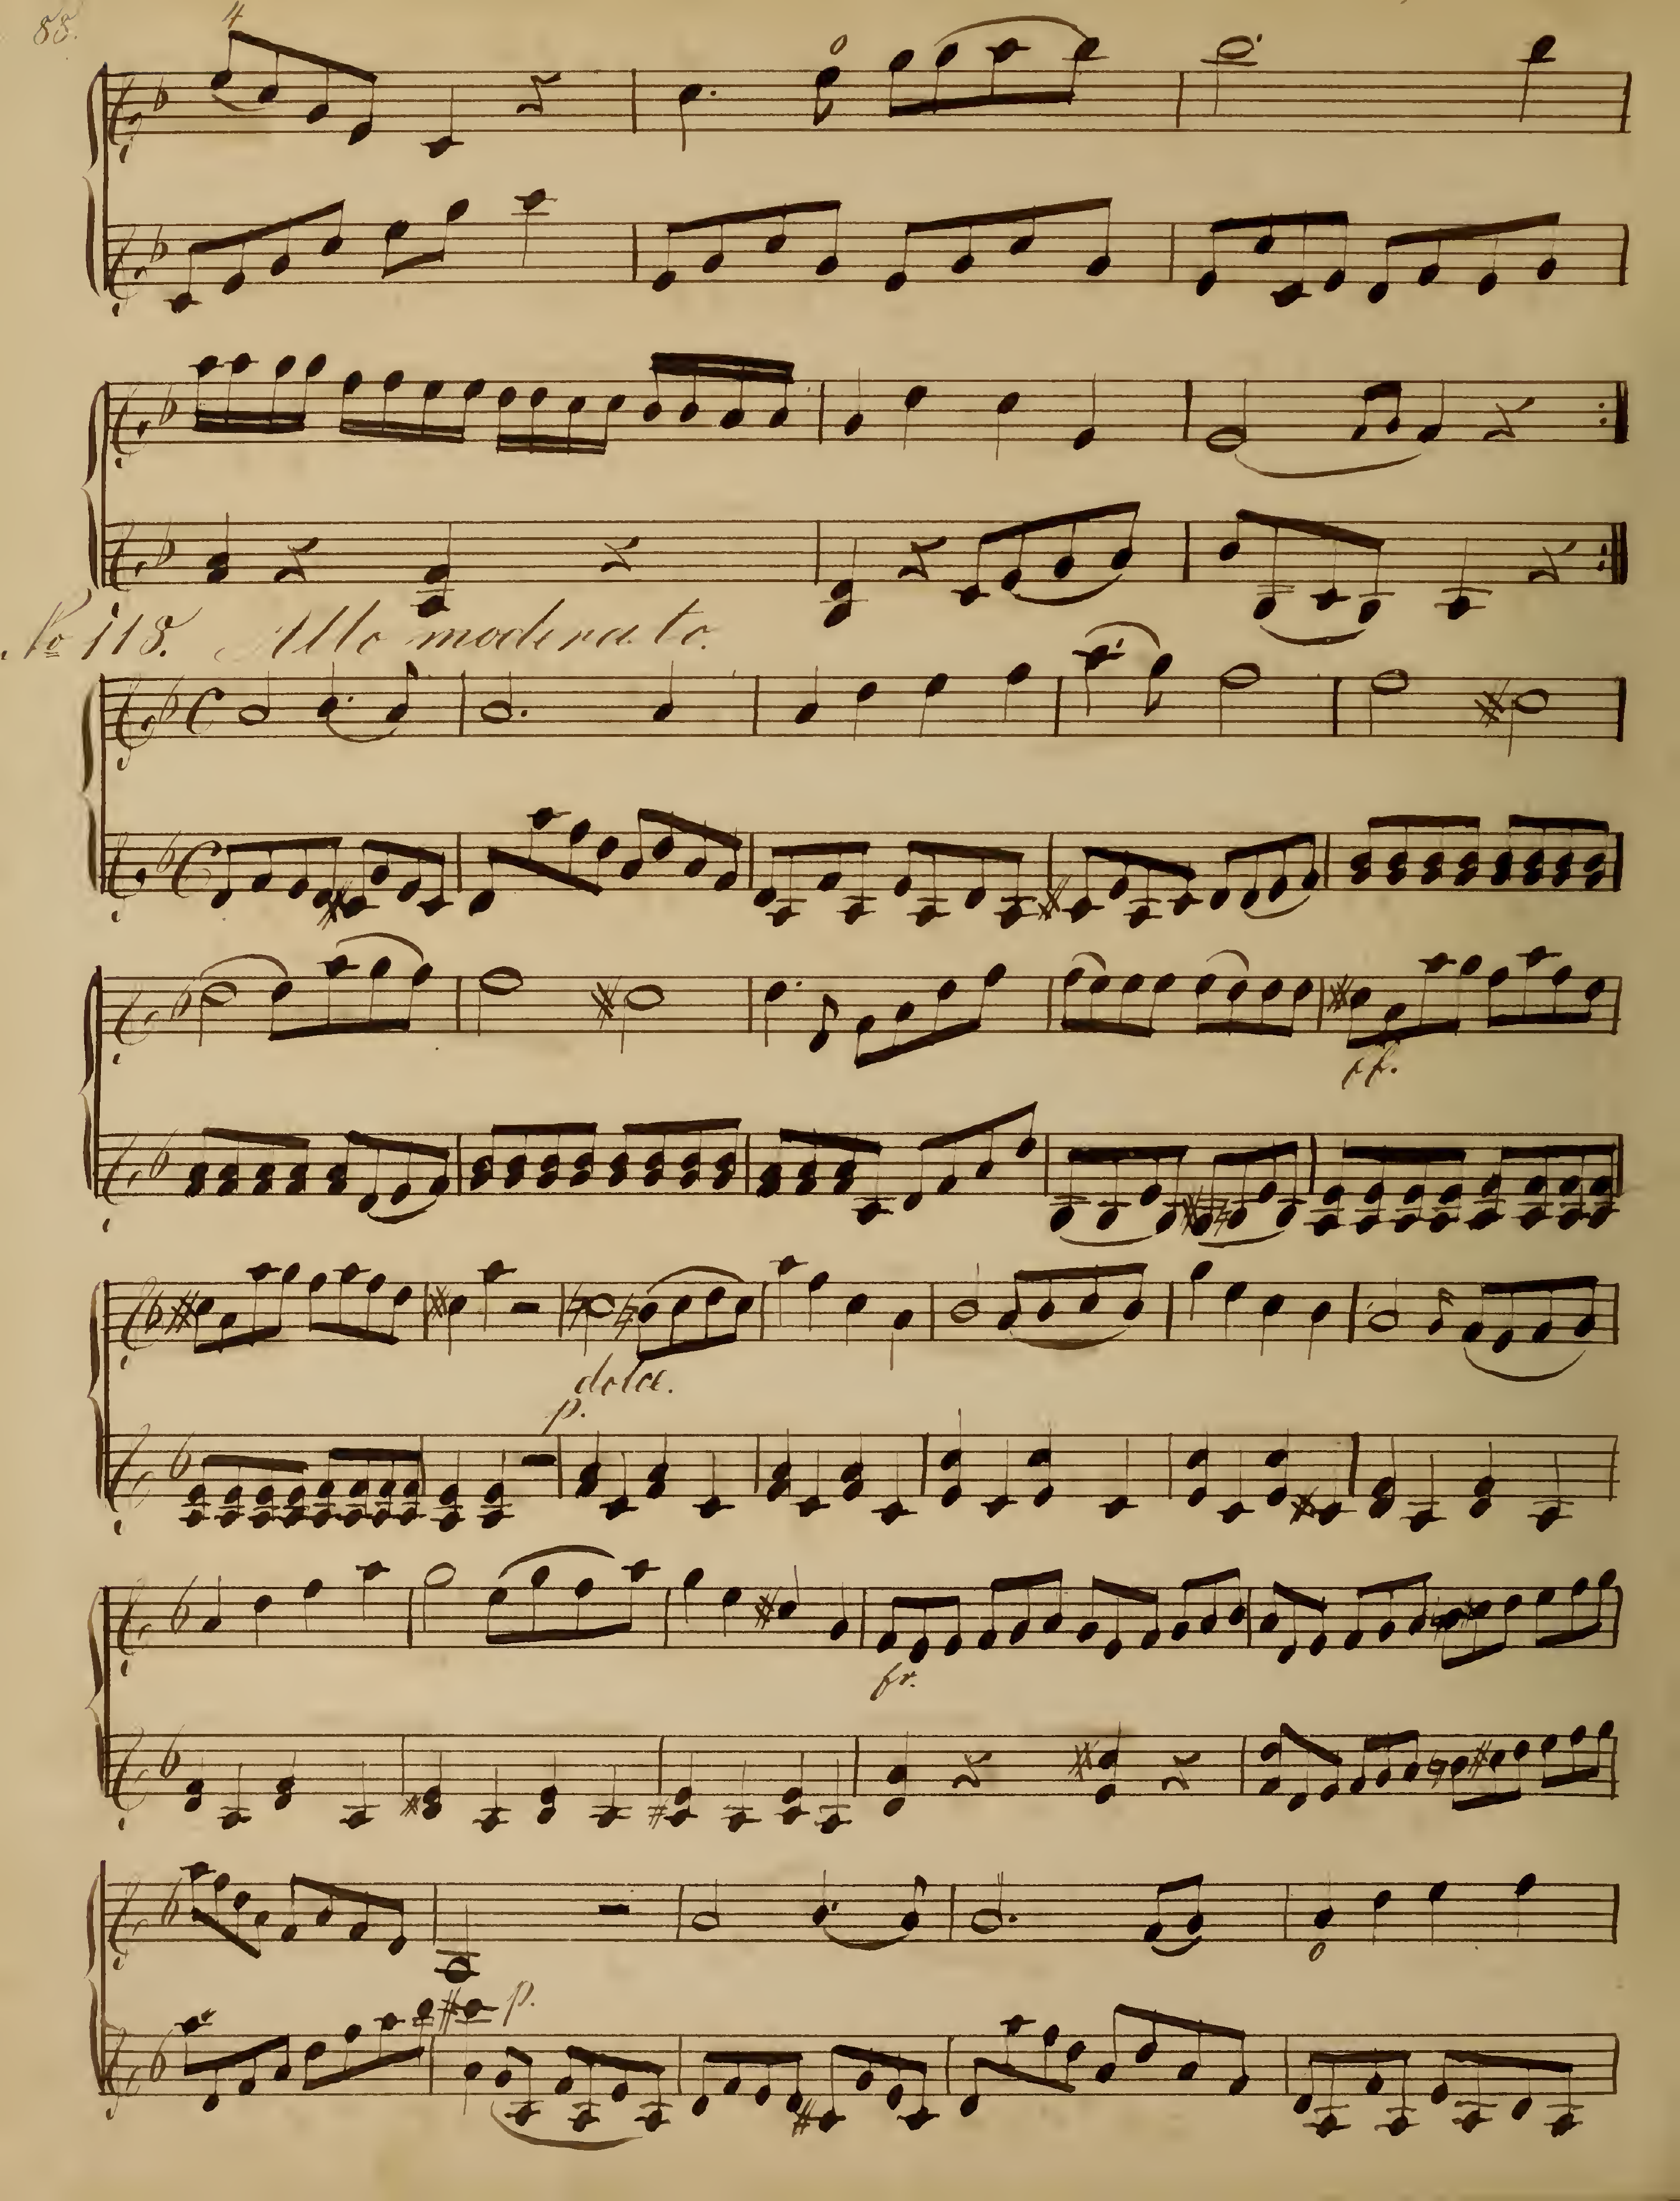 88.
4
0
No 118. Allo moderato.
ff.
dolce.
p.
fr.
0
p.